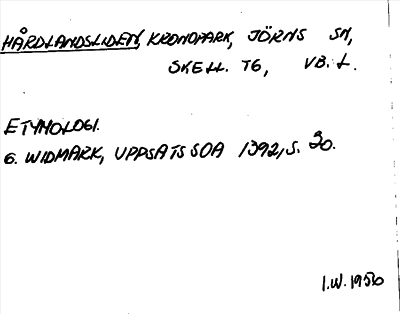 HÅRDLANDSLIDEN, KRONOPARK, JÖRNS SN,
SKELL. TG, VB. L.
ETYMOLOGI.
G. WIDMARK, UPPSATS SOA 1392, S. 30.
I.W. 1950